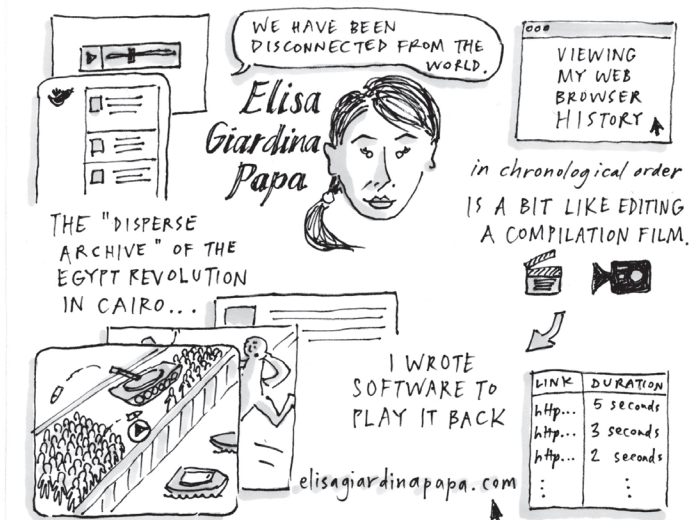 WE HAVE BEEN
DISCONNECTED FROM THE
WORLD.
Elisa
Giardina
Papa
VIEWING
MY WEB
BROWSER
HISTORY
in chronological order
IS A BIT LIKE EDITING
A COMPILATION FILM.
THE "DISPERSE
ARCHIVE" OF THE
EGYPT REVOLUTION
IN CAIRO...
I WROTE
SOFTWARE TO
PLAY IT BACK
elisagiardinapapa.com
LINK DURATION
http... 5 seconds
http... 3 seconds
http... 2 seconds